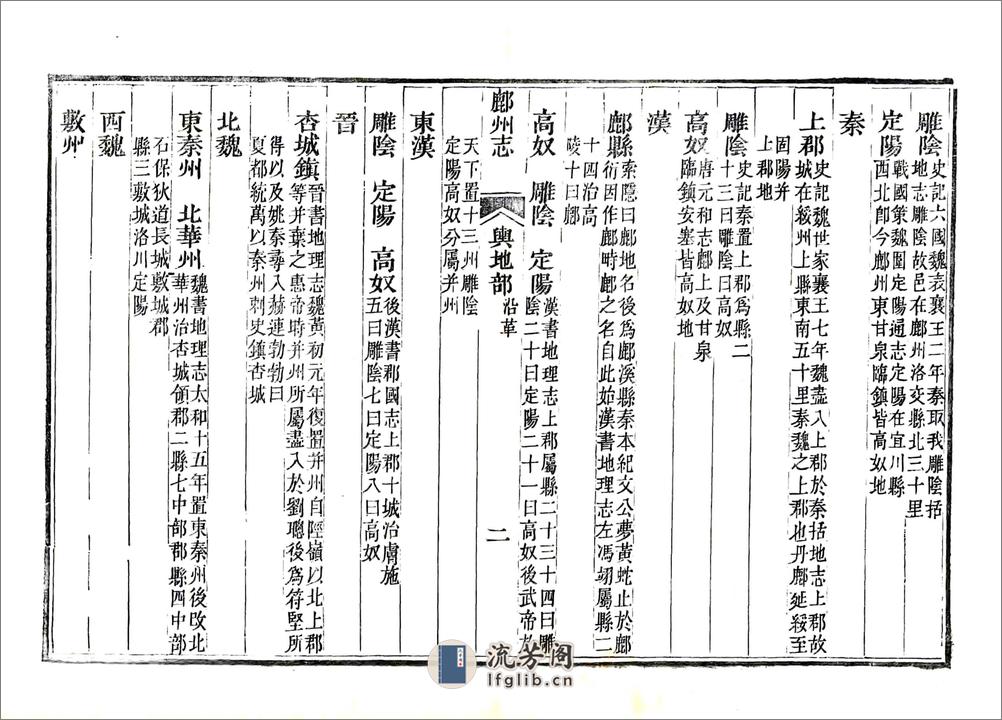 雕陰史記六國魏表襄王二年秦取我雕陰括
地志雕陰故邑在鄜州洛交縣北三十里
定陽戰國策魏圍定陽通志定陽在宜川縣
西北卽今鄜州東甘泉臨鎮皆高奴地
秦
上郡史記魏世家襄王七年魏盡入上郡於秦括地志上郡故
城在綏州上縣東南五十里秦魏之上郡也丹鄜延綏至
固陽并
上郡地
雕陰史記秦置上郡爲縣二
十三曰雕陰曰高奴
高奴唐元和志鄜上及甘泉
臨鎮安塞皆高奴地
漢
鄜縣索隱曰鄜地名後爲鄜溪縣秦本紀文公夢黃蛇止於鄜
衍因作鄜畤鄜之名自此始漢書地理志左馮翊屬縣二
十四治高
陵十曰鄜
高奴 雕陰 定陽漢書地理志上郡屬縣二十三十四曰雕
陰二十曰定陽二十一曰高奴後武帝於
天下置十三州雕陰
定陽高奴分屬并州
鄜州志 輿地部 沿革 二
東漢
雕陰 定陽 高奴後漢書郡國志上郡十城治膚施
五曰雕陰七曰定陽八曰高奴
晉
杏城鎮晉書地理志魏黃初元年復置并州自陘嶺以北上郡
等并棄之惠帝時并州所屬盡入於劉聰後爲符堅所
得以及姚秦尋入赫連勃勃曰
夏都統萬以秦州刺史鎮杏城
北魏
東秦州 北華州魏書地理志太和十五年置東秦州後改北
華州治杏城領郡二縣七中部郡縣四中部
石保狄道長城敷城郡
縣三敷城洛川定陽
西魏
敷州
流芳阁
lfglib.cn